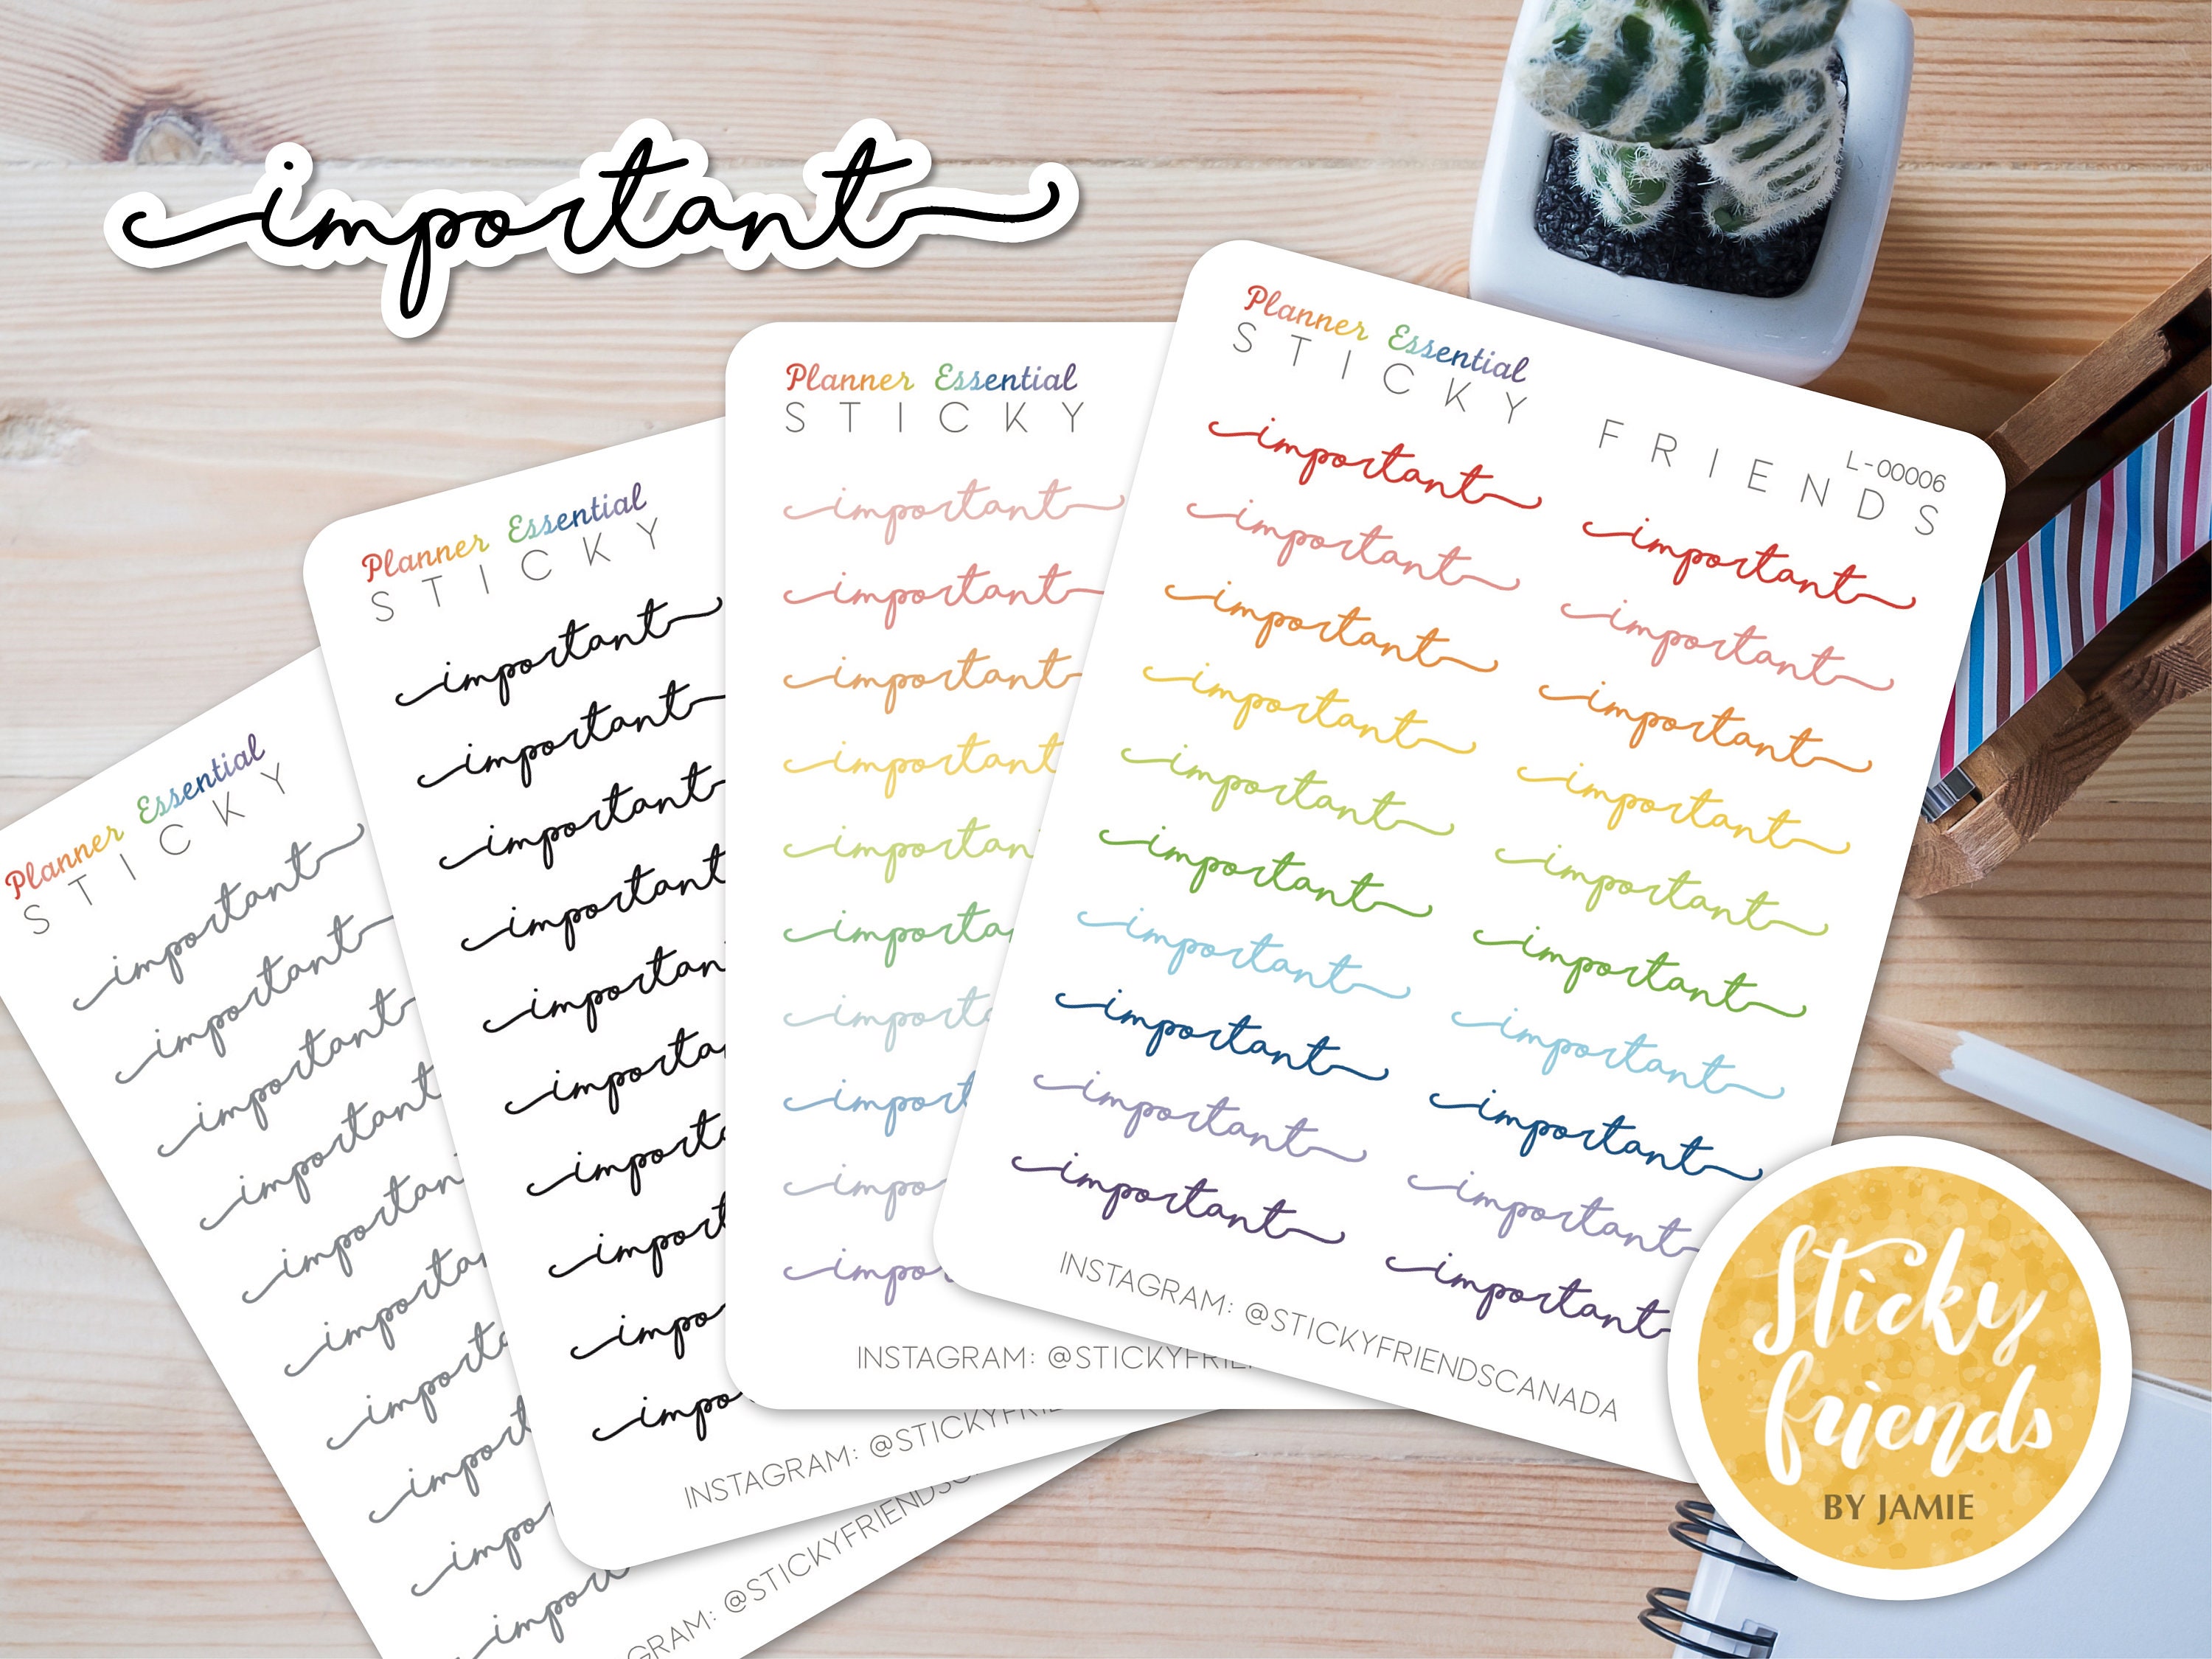 important
Planner Essential
STICKY
important
important
important
important
importan
importa
import
import
impor
impor
GRAM: @STICKYFRIENDSC
Planner Essential
STICKY
important
important
important
important
importan
importa
importa
import
impo
impo
INSTAGRAM: @STICKYFRIE
Planner Essential
STICKY
important
important
important
important
importan
importa
importa
import
impo
impo
INSTAGRAM: @STICKYFRIE
Planner Essential
STICKY FRIENDS
L-00006
important important
important important
important important
important important
important important
important important
important important
important important
important important
important important
INSTAGRAM: @STICKYFRIENDSCANADA
Sticky
friends
BY JAMIE